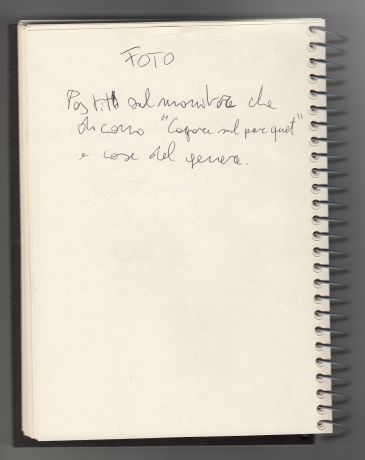 FOTO
Post it sul monitor che
dicono "Copera sul parquet"
e cose del genere.